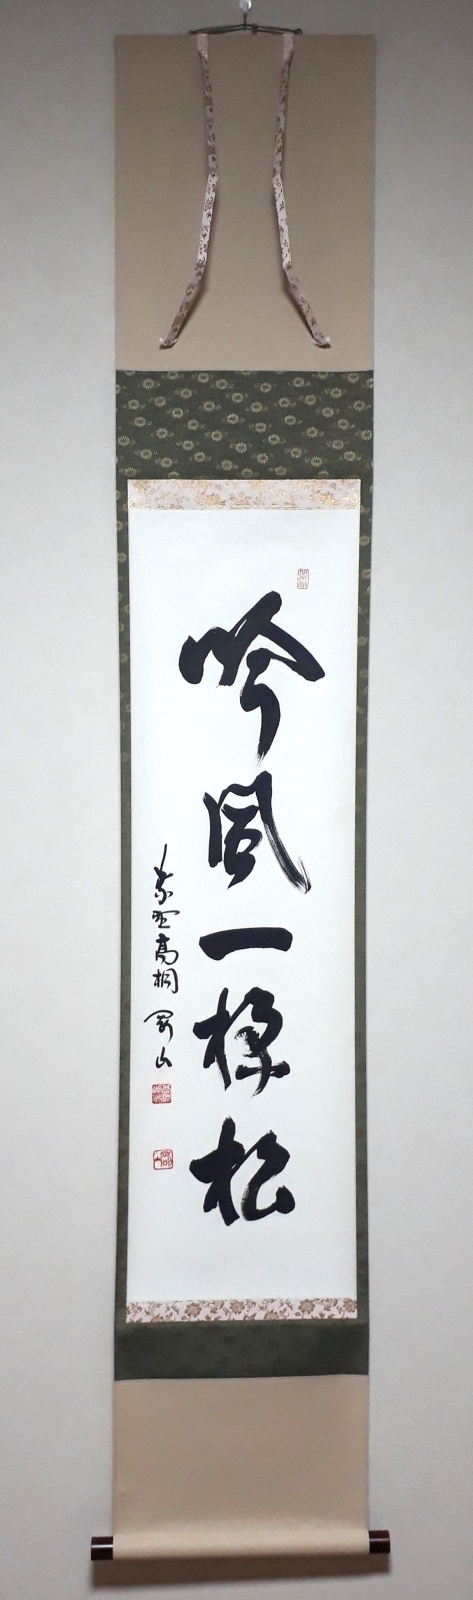 吟風一様松
紫野高桐 剛山